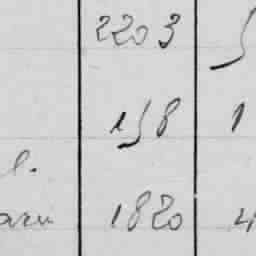 2203 5
158 1
l.
aru 1820 4